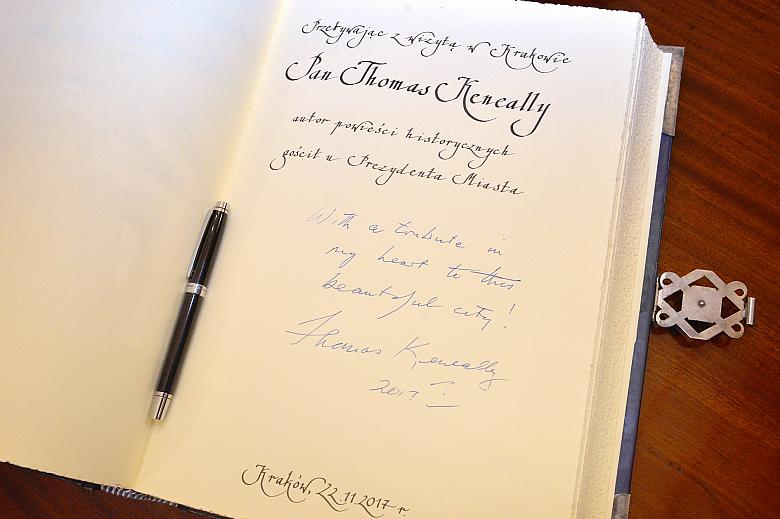 Przebywając z wizytą w Krakowie
Pan Thomas Keneally
autor powieści historycznych
gościł u Prezydenta Miasta
With a tribute in
my heart to this
beautiful city!
Thomas Keneally
2017
Kraków, 22.11.2017 r.